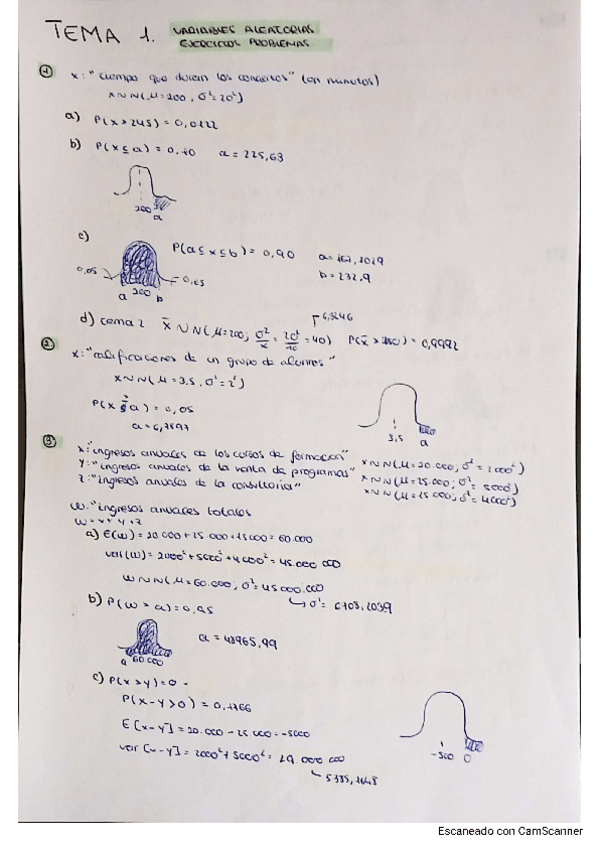 TEMA 1. VARIABLES ALEATORIAS
EJERCICIOS PROBLEMAS
① x: "tiempo que duran los conciertos" (en minutos)
x ∼ N(μ=200, σ²=20²)
a) P(x>245) = 0,0122
b) P(x≤a) = 0,90 a = 225,63
200
a
c)
P(a≤x≤b) = 0,90
b = 232,9
0,05
0,05
a 200 b
6,3246
d) tema 2 x̄ ∼ N(μ=200;
= 40)
= 0,9992
②
x: "calificaciones de un grupo de alumnos"
x ∼ N(μ=3,5, σ²=2²)
= 0,05
a = 6,7897
3,5 a
③
x: "ingresos anuales de los cursos de formacion" x ∼ N(μ=20.000; σ²=2000²)
y: "ingresos anuales de la venta de programas" x ∼ N(μ=25.000; σ²=5000²)
z: "ingresos anuales de la consultoria" x ∼ N(μ=15.000; σ²=4000²)
w: "ingresos anuales totales
w = x+y+z
a) E(w) = 20000+25000+15000 = 60.000
var(w) = 2000²+5000²+4000² = 45.000.000
w ∼ N(μ=60.000, σ²=45000.000
6708,2039
b) P(w>a) = 0,95
a = 48965,99
a 60.000
c) P(x>y) = 0
P(x-y>0) = 0,1766
E[x-y] = 20.000 - 25000 = -5000
var[x-y] = 2000²+5000² = 29.000.000
5385,1648
0
Escaneado con CamScanner